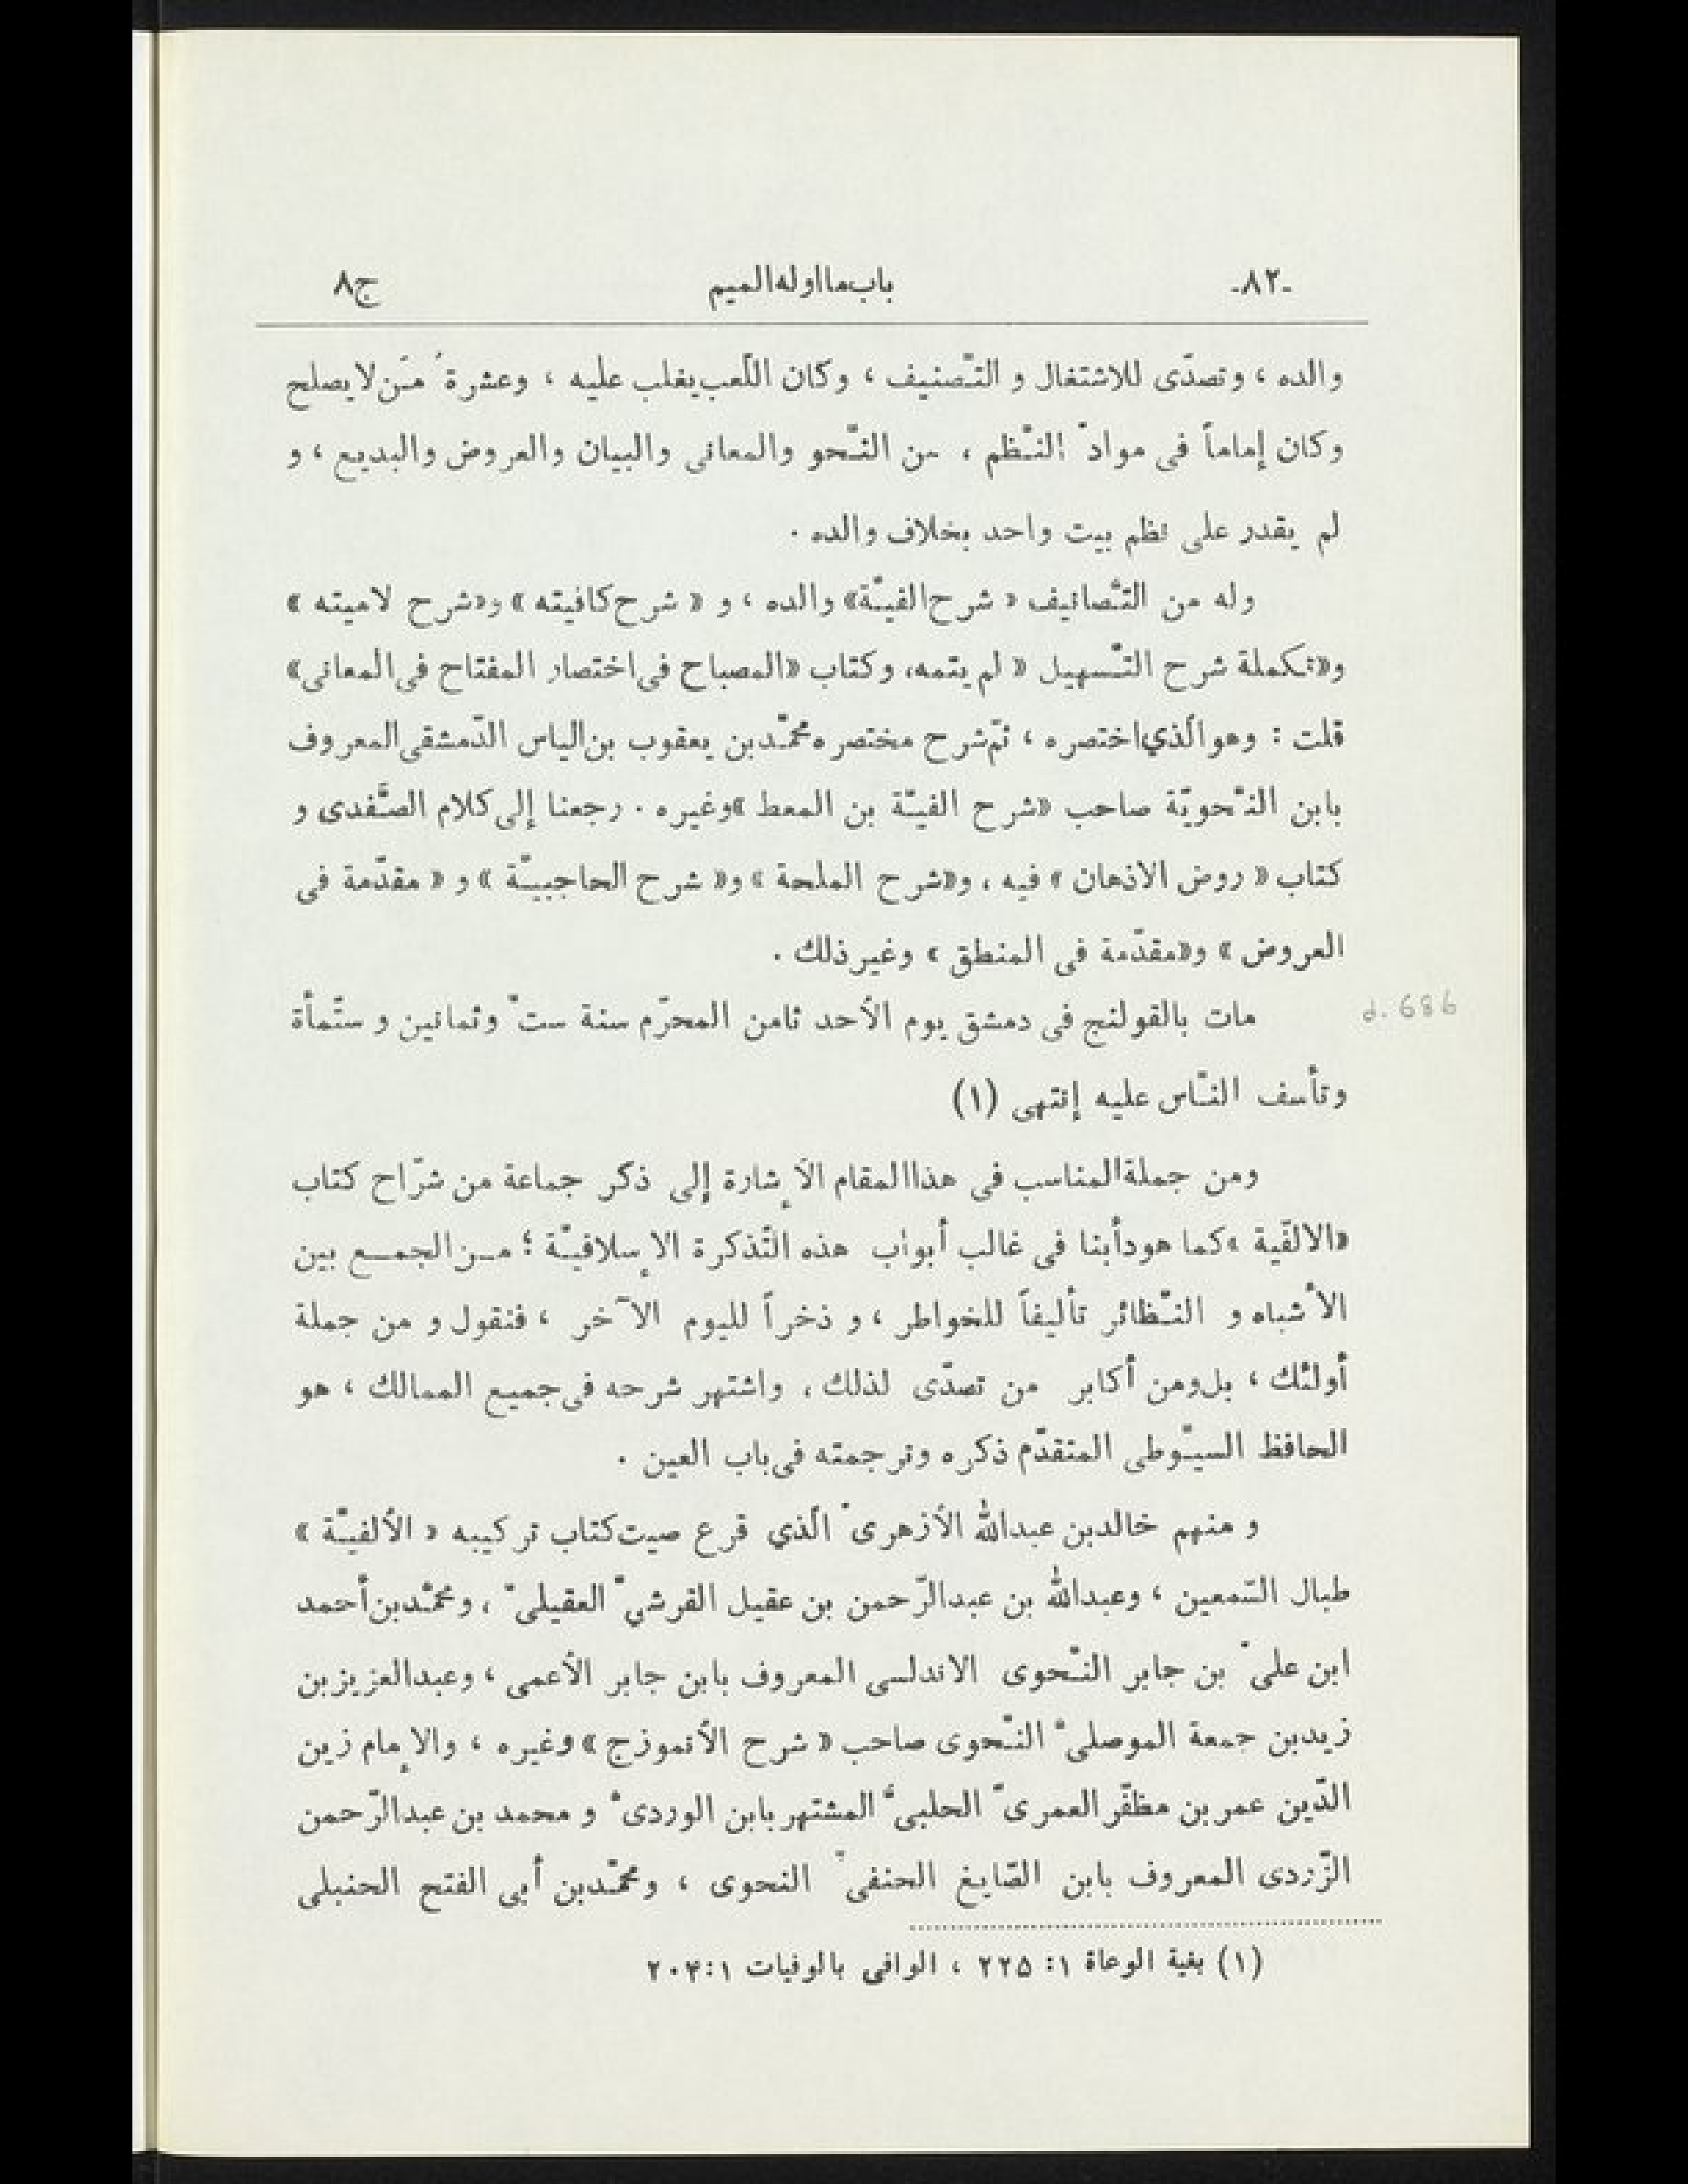 -٨٢- باب‌ما اوله‌الميم ج٨
والده ، وتصدّى للاشتغال و التّصنيف ، وكان اللّعب يغلب عليه ، وعشرةُ مَن لا يصلح
وكان إماماً فى موادّ النّظم ، من النّحو والمعانى والبيان والعروض والبديع ، و
لم يقدر على نظم بيت واحد بخلاف والده .
وله من التّصانيف « شرح الفيّة» والده ، و « شرح كافيته » و«شرح لاميته »
و«تكملة شرح التّسهيل « لم يتمه، وكتاب «المصباح فى اختصار المفتاح فى المعانى»
قلت : وهو الّذي اختصره ، ثمّ شرح مختصره محمّد بن يعقوب بن الياس الدّمشقى المعروف
بابن النّحويّة صاحب «شرح الفيّة بن المعط »وغيره . رجعنا إلى كلام الصّفدى و
كتاب « روض الاذهان » فيه ، و«شرح الملحة » و« شرح الحاجبيّة » و « مقدّمة فى
العروض » و«مقدّمة فى المنطق » وغير ذلك .
مات بالقولنج فى دمشق يوم الأحد ثامن المحرّم سنة ستّ وثمانين و ستّمأة
d. 686
وتأسف النّاس عليه إنتهى (١)
ومن جملة المناسب فى هذا المقام الاٍشارة إلى ذكر جماعة من شرّاح كتاب
«الالفّية »كما هو دأبنا فى غالب أبواب هذه التّذكرة الاٍسلافيّة ؛ مـن الجمـع بين
الأشباه و النّظائر تأليفاً للخواطر ، و ذخراً لليوم الآخر ، فنقول و من جملة
أولئك ، بل ومن أكابر من تصدّى لذلك ، واشتهر شرحه فى جميع الممالك ، هو
الحافظ السيّوطى المتقدّم ذكره وترجمته فى باب العين .
و منهم خالد بن عبدالله الأزهرىّ الّذي قرع صيت كتاب تركيبه « الألفيّة »
طبال السّمعين ، وعبدالله بن عبدالرّحمن بن عقيل القرشيّ العقيلىّ ، ومحمّد بن أحمد
ابن علىّ بن جابر النّحوى الاندلسى المعروف بابن جابر الأعمى ، وعبدالعزيز بن
زيد بن جمعة الموصلىّ النّحوى صاحب « شرح الأنموزج » وغيره ، والاٍمام زين
الدّين عمر بن مظفّر العمرىّ الحلبىّ المشتهر بابن الوردىّ و محمد بن عبدالرّحمن
الزّردى المعروف بابن الصّايغ الحنفىّ النحوى ، ومحمّد بن أبى الفتح الحنبلى
(١) بغية الوعاة ١: ٢٢۵ ، الوافى بالوفيات ١:٢٠۴